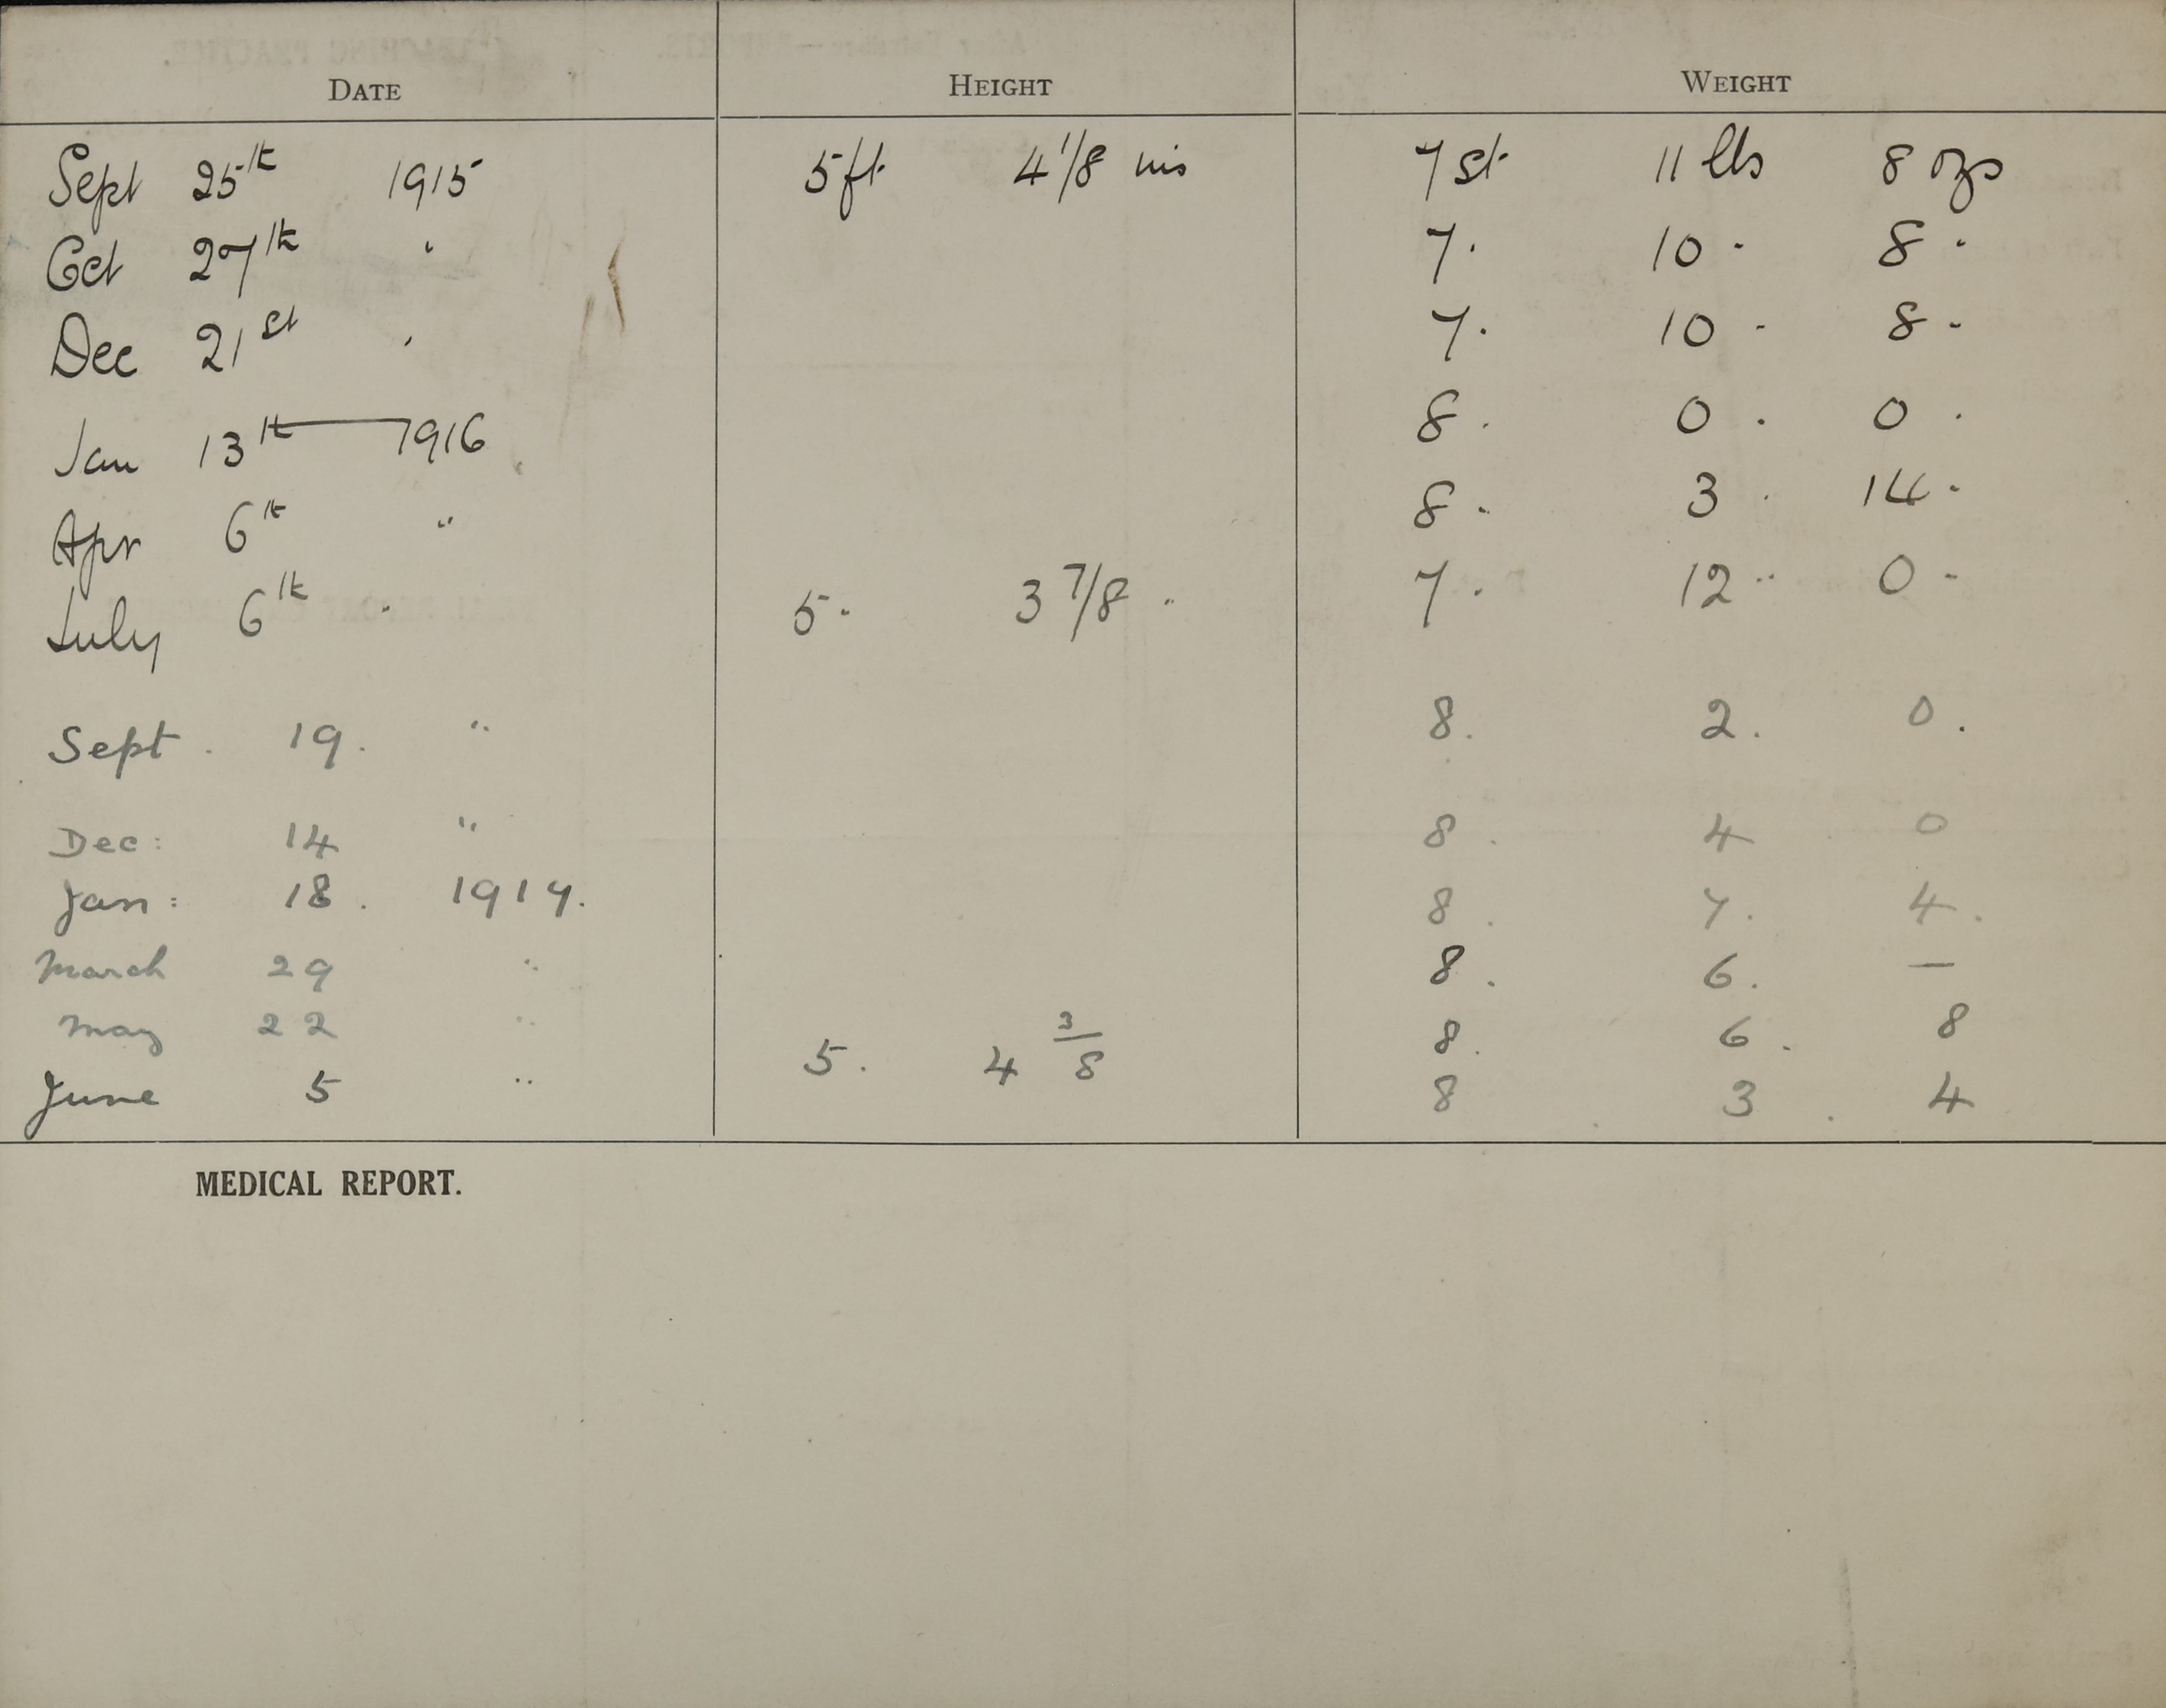 DATE HEIGHT WEIGHT
Sept 25th 1915 5ft 4 1/8 ins 7 st 11 lbs 8 ozs
Oct 27th " 7. 10 - 8 -
Dec 21st " 7. 10 - 8 -
Jan 13th 1916 8. 0 . 0 .
Apr 6th " 8. 3 . 14 -
July 6th " 5. 3 7/8 " 7. 12 " 0 -
Sept. 19. " 8. 2. 0.
Dec: 14 " 8. 4 0
Jan: 18. 1917. 8. 7. 4.
March 29 " 8. 6. —
May 22 " 8. 6. 8
June 5 " 5. 4 3/8 8 3 . 4
MEDICAL REPORT.